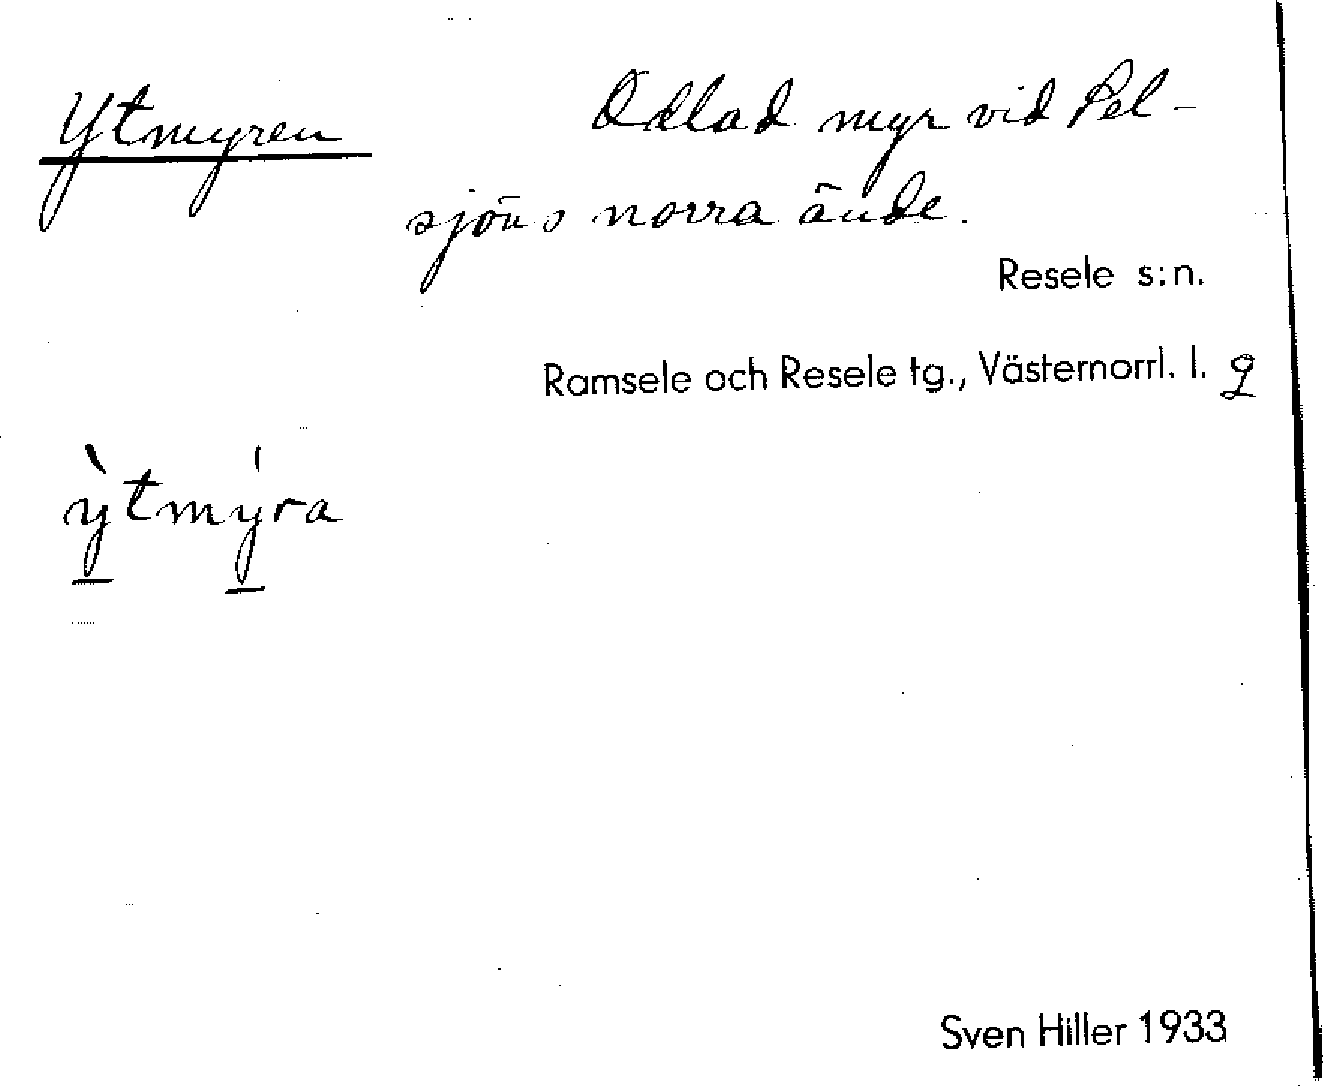 Ytmyren Odlad myr vid Pel-
sjöns norra ände.
Resele s:n.
Ramsele och Resele tg., Västernorrl. l. 9
ỳtmýra
Sven Hiller 1933